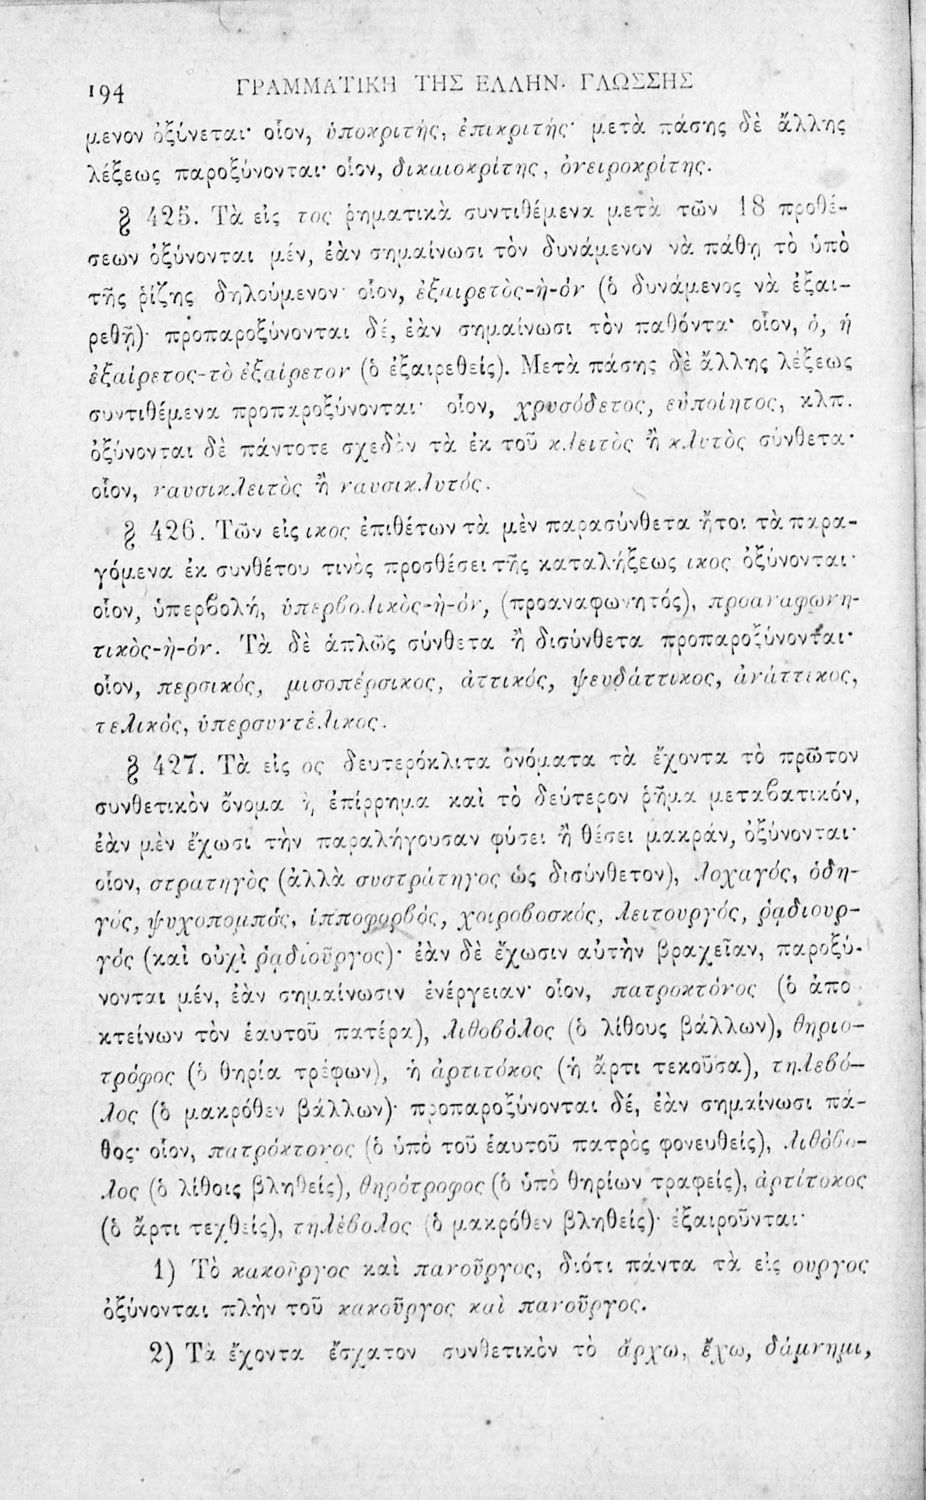 194 ΓΡΑΜΜΑΤΙΚΗ ΤΗΣ ΕΛΛΗΝ· ΓΛΩΣΣΗΣ
μενον ὀξύνεται· οἷον, ὑποκριτής, ἐπικριτής· μετὰ πάσης δὲ ἄλλης
λέξεως παροξύνονται· οἷον, δικαιοκρίτης, ὀνειροκρίτης.
§ 425. Τὰ εἰς τος ῥηματικὰ συντιθέμενα μετὰ τῶν 18 προθέ-
σεων ὀξύνονται μέν, ἐὰν σημαίνωσι τὸν δυνάμενον νὰ πάθῃ τὸ ὑπὸ
τῆς ῥίζης δηλούμενον· οἷον, ἐξαιρετὸς-ὴ-ὸν (ὁ δυνάμενος νὰ ἐξαι-
ρεθῇ)· προπαροξύνονται δέ, ἐὰν σημαίνωσι τὸν παθόντα· οἷον, ὁ, ἡ
ἐξαίρετος-τὸ ἐξαίρετον (ὁ ἐξαιρεθείς). Μετὰ πάσης δὲ ἄλλης λέξεως
συντιθέμενα προπαροξύνονται· οἷον, χρυσόδετος, εὐποίητος, κλπ.
ὀξύνονται δὲ πάντοτε σχεδὸν τὰ ἐκ τοῦ κλειτὸς ἢ κλυτὸς σύνθετα·
οἷον, ναυσικλειτὸς ἢ ναυσικλυτός.
§ 426. Τῶν εἰς ικος ἐπιθέτων τὰ μὲν παρασύνθετα ἤτοι τὰ παρα-
γόμενα ἐκ συνθέτου τινὸς προσθέσει τῆς καταλήξεως ικος ὀξύνονται·
οἷον, ὑπερβολή, ὑπερβολικὸς-ὴ-όν, (προαναφωνητός), προαναφωνη-
τικὸς-ὴ-όν. Τὰ δὲ ἁπλῶς σύνθετα ἢ δισύνθετα προπαροξύνονται·
οἷον, περσικός, μισοπέρσικος, ἀττικός, ψευδάττικος, ἀνάττικος,
τελικός, ὑπερσυντέλικος.
§ 427. Τὰ εἰς ος δευτερόκλιτα ὀνόματα τὰ ἔχοντα τὸ πρῶτον
συνθετικὸν ὄνομα ἢ ἐπίρρημα καὶ τὸ δεύτερον ῥῆμα μεταβατικόν,
ἐὰν μὲν ἔχωσι τὴν παραλήγουσαν φύσει ἢ θέσει μακράν, ὀξύνονται·
οἷον, στρατηγὸς (ἀλλὰ συστράτηγος ὡς δισύνθετον), λοχαγός, ὁδη-
γός, ψυχοπομπός, ἱπποφορβός, χοιροβοσκός, λειτουργός, ῥᾳδιουρ-
γός (καὶ οὐχὶ ῥᾳδιοῦργος)· ἐὰν δὲ ἔχωσιν αὐτὴν βραχεῖαν, παροξύ-
νονται μέν, ἐὰν σημαίνωσιν ἐνέργειαν· οἷον, πατροκτόνος (ὁ ἀπο
κτείνων τὸν ἑαυτοῦ πατέρα), λιθοβόλος (ὁ λίθους βάλλων), θηριο-
τρόφος (ὁ θηρία τρέφων), ἡ ἀρτιτόκος (ἡ ἄρτι τεκοῦσα), τηλεβό-
λος (ὁ μακρόθεν βάλλων)· προπαροξύνονται δέ, ἐὰν σημαίνωσι πά-
θος· οἷον, πατρόκτονος (ὁ ὑπὸ τοῦ ἑαυτοῦ πατρὸς φονευθείς), λιθόβο-
λος (ὁ λίθοις βληθείς), θηρότροφος (ὁ ὑπὸ θηρίων τραφείς), ἀρτίτοκος
(ὁ ἄρτι τεχθείς), τηλέβολος (ὁ μακρόθεν βληθείς)· ἐξαιροῦνται·
1) Τὸ κακοῦργος καὶ πανοῦργος, διότι πάντα τὰ εἰς ουργος
ὀξύνονται πλὴν τοῦ κακοῦργος καὶ πανοῦργος.
2) Τὰ ἔχοντα ἔσχατον συνθετικὸν τὸ ἄρχω, ἔχω, δάμνημι,